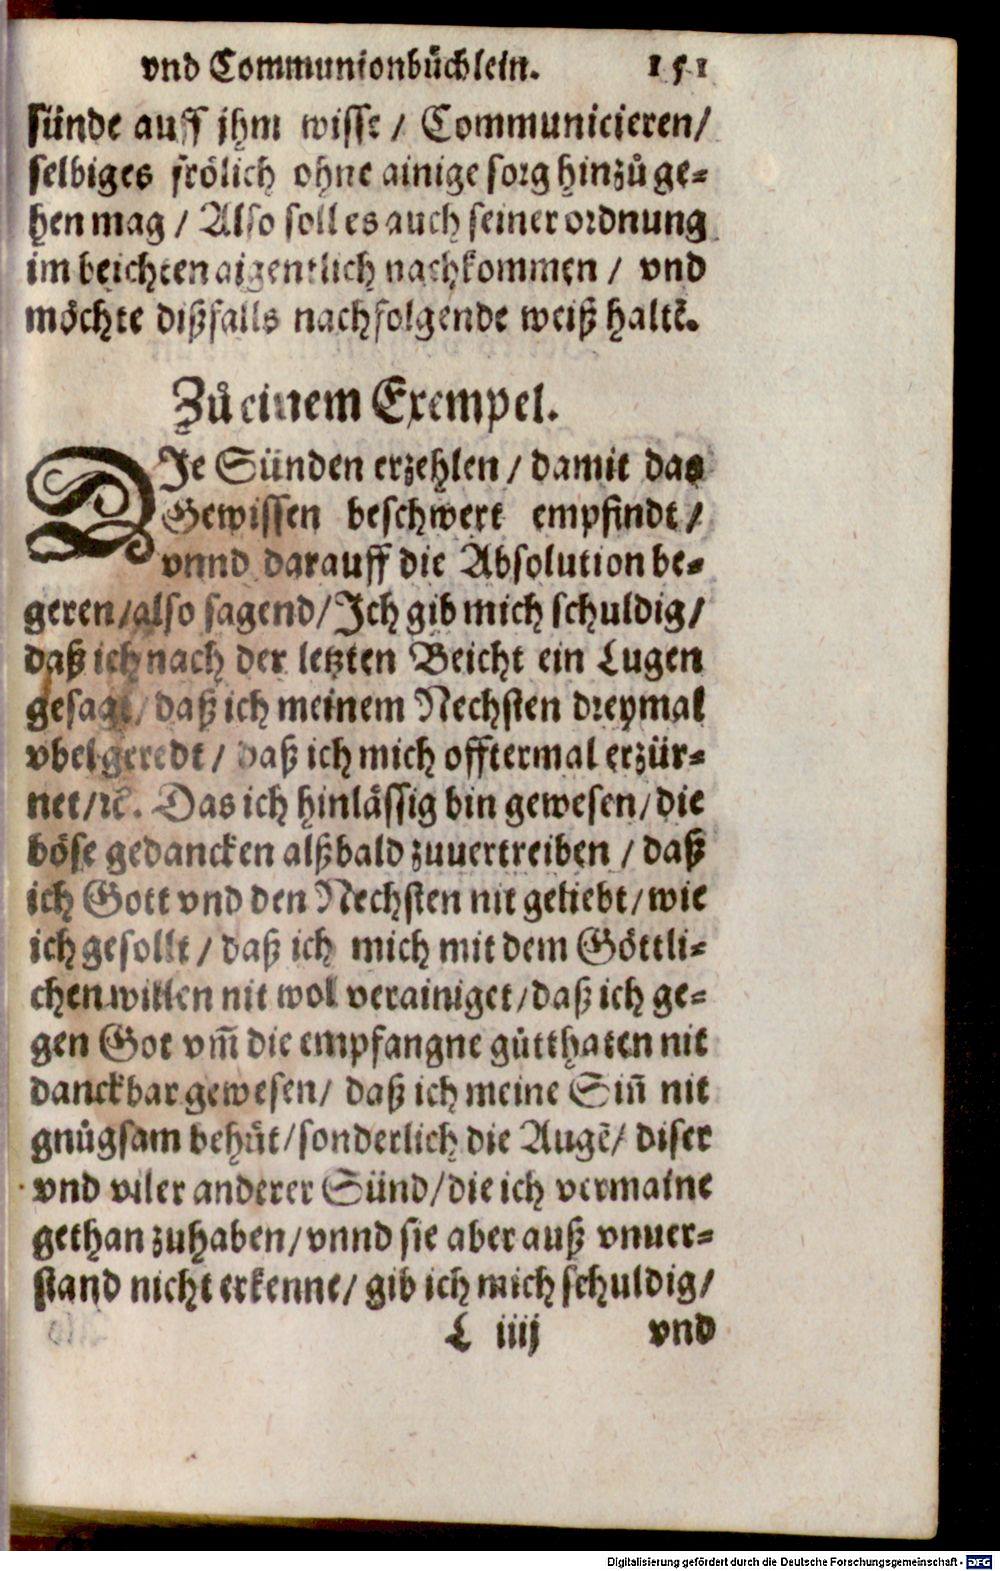 vnd Communionbüchlein. 151
sünde auff jhm wisse / Communicieren/
selbiges frölich ohne ainige sorg hinzů ge-
hen mag / Also soll es auch seiner ordnung
im beichten aigentlich nachkommen / vnd
möchte dißfalls nachfolgende weiß haltẽ.
Zů einem Exempel.
DJe Sünden erzehlen / damit das
Gewissen beschwert empfindt /
vnnd darauff die Absolution be-
geren / also sagend / Jch gib mich schuldig /
daß ich nach der letzten Beicht ein Lugen
gesagt / daß ich meinem Nechsten dreymal
vbel geredt / daß ich mich offtermal erzür-
net / ꝛc̃. Das ich hinlässig bin gewesen / die
böse gedancken alßbald zuuertreiben / daß
ich Gott vnd den Nechsten nit geliebt / wie
ich gesollt / daß ich mich mit dem Göttli-
chen willen nit wol verainiget / daß ich ge-
gen Got vm̃ die empfangne gůtthaten nit
danckbar gewesen / daß ich meine Siñ nit
gnůgsam behůt / sonderlich die Augẽ / diser
vnd viler anderer Sünd / die ich vermaine
gethan zuhaben / vnnd sie aber auß vnuer-
stand nicht erkenne / gib ich mich schuldig /
L iiij vnd
Digitalisierung gefördert durch die Deutsche Forschungsgemeinschaft - DFG